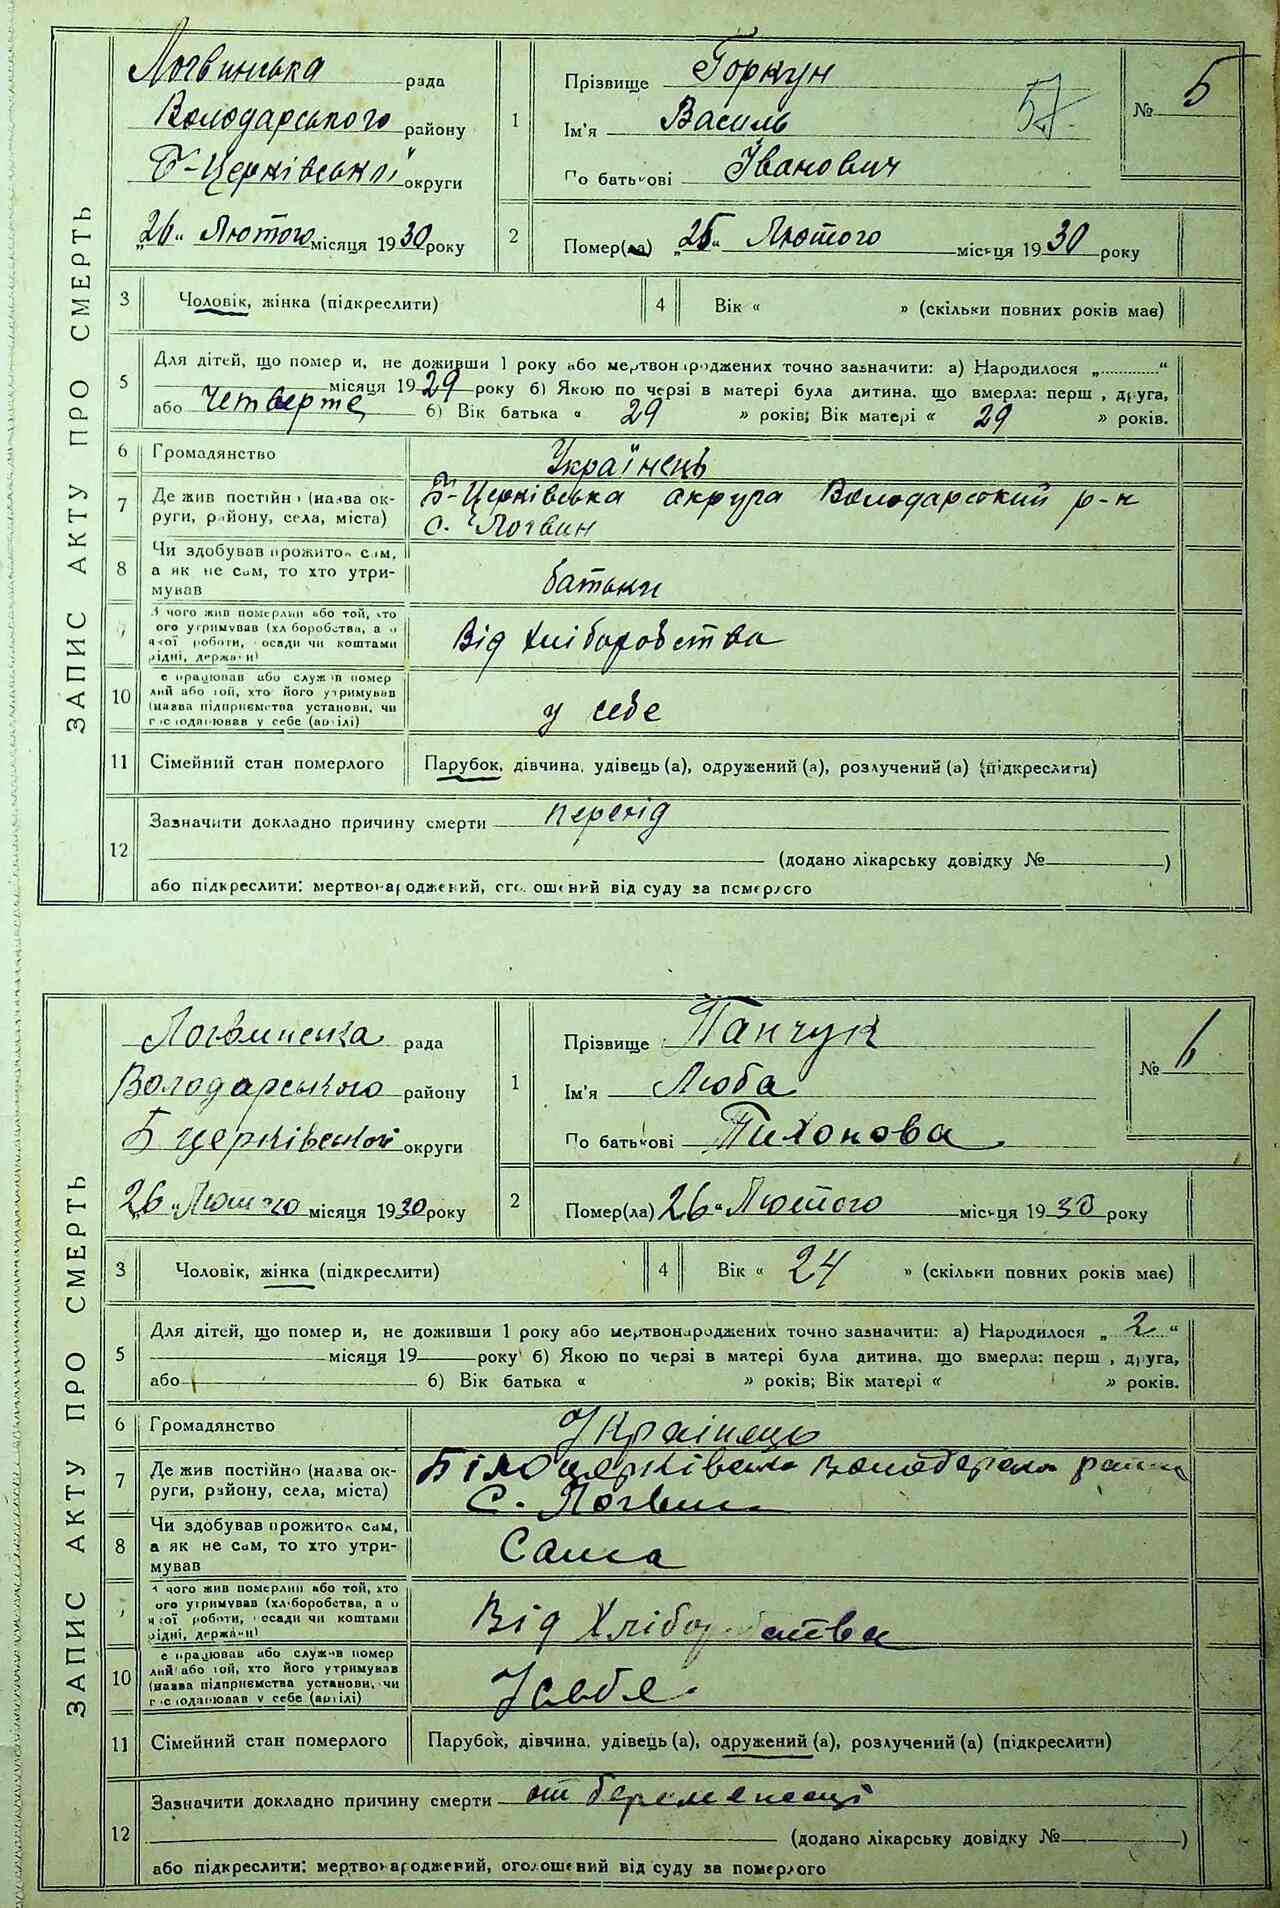 ЗАПИС АКТУ ПРО СМЕРТЬ
Логвинська рада
Володарського району
Б-Церківської округи
„26“ Лютого місяця 1930 року
1
Прізвище Горкун
Ім'я Василь
57
По батькові Іванович
№ 5
2
Помер(ла) „25“ Лютого місяця 1930 року
3 Чоловік, жінка (підкреслити)
4 Вік « » (скільки повних років має)
5
Для дітей, що помер и, не доживши 1 року або мертвонароджених точно зазначити: а) Народилося „............“
місяця 1929 року б) Якою по черзі в матері була дитина, що вмерла: перш , друга,
або Четверте б) Вік батька « 29 » років; Вік матері « 29 » років.
6 Громадянство Українець
7 Де жив постійно (назва ок-
руги, району, села, міста)
Б-Церківська округа Володарський р-н
с. Логвин
8 Чи здобував прожиток сам,
а як не сам, то хто утри-
мував
батьки
чого жив померлий або той, хто
ого утримував (хліборобства, а о
якої роботи, посади чи коштами
рідні, держави)
Від хліборобства
10
е працював або служив помер
лий або той, хто його утримував
(назва підприємства установи, чи
господарював у себе (артілі)
у себе
11 Сімейний стан померлого Парубок, дівчина, удівець (а), одружений (а), розлучений (а) (підкреслити)
12
Зазначити докладно причину смерти
(додано лікарську довідку № )
або підкреслити: мертвонароджений, оголошений від суду за померлого
ЗАПИС АКТУ ПРО СМЕРТЬ
Логвинська рада
Володарського району
Б церківської округи
„26“ Лютого місяця 1930 року
1
Прізвище Панчук
Ім'я Люба
По батькові Тихонова
№ 6
2
Помер(ла) „26“ Лютого місяця 1930 року
3 Чоловік, жінка (підкреслити)
4 Вік « 24 » (скільки повних років має)
5
Для дітей, що помер и, не доживши 1 року або мертвонароджених точно зазначити: а) Народилося „ 2 “
місяця 19 року б) Якою по черзі в матері була дитина, що вмерла: перш , друга,
або б) Вік батька « » років; Вік матері « » років.
6 Громадянство Українець
7 Де жив постійно (назва ок-
руги, району, села, міста)
Білоцерківська
С. Логвин
8 Чи здобував прожиток сам,
а як не сам, то хто утри-
мував
Сама
чого жив померлий або той, хто
ого утримував (хліборобства, а о
якої роботи, посади чи коштами
рідні, держави)
Від Хліборобства
10
е працював або служив помер
лий або той, хто його утримував
(назва підприємства установи, чи
господарював у себе (артілі)
У себе
11 Сімейний стан померлого Парубок, дівчина, удівець (а), одружений (а), розлучений (а) (підкреслити)
12
Зазначити докладно причину смерти от
(додано лікарську довідку № )
або підкреслити: мертвонароджений, оголошений від суду за померлого